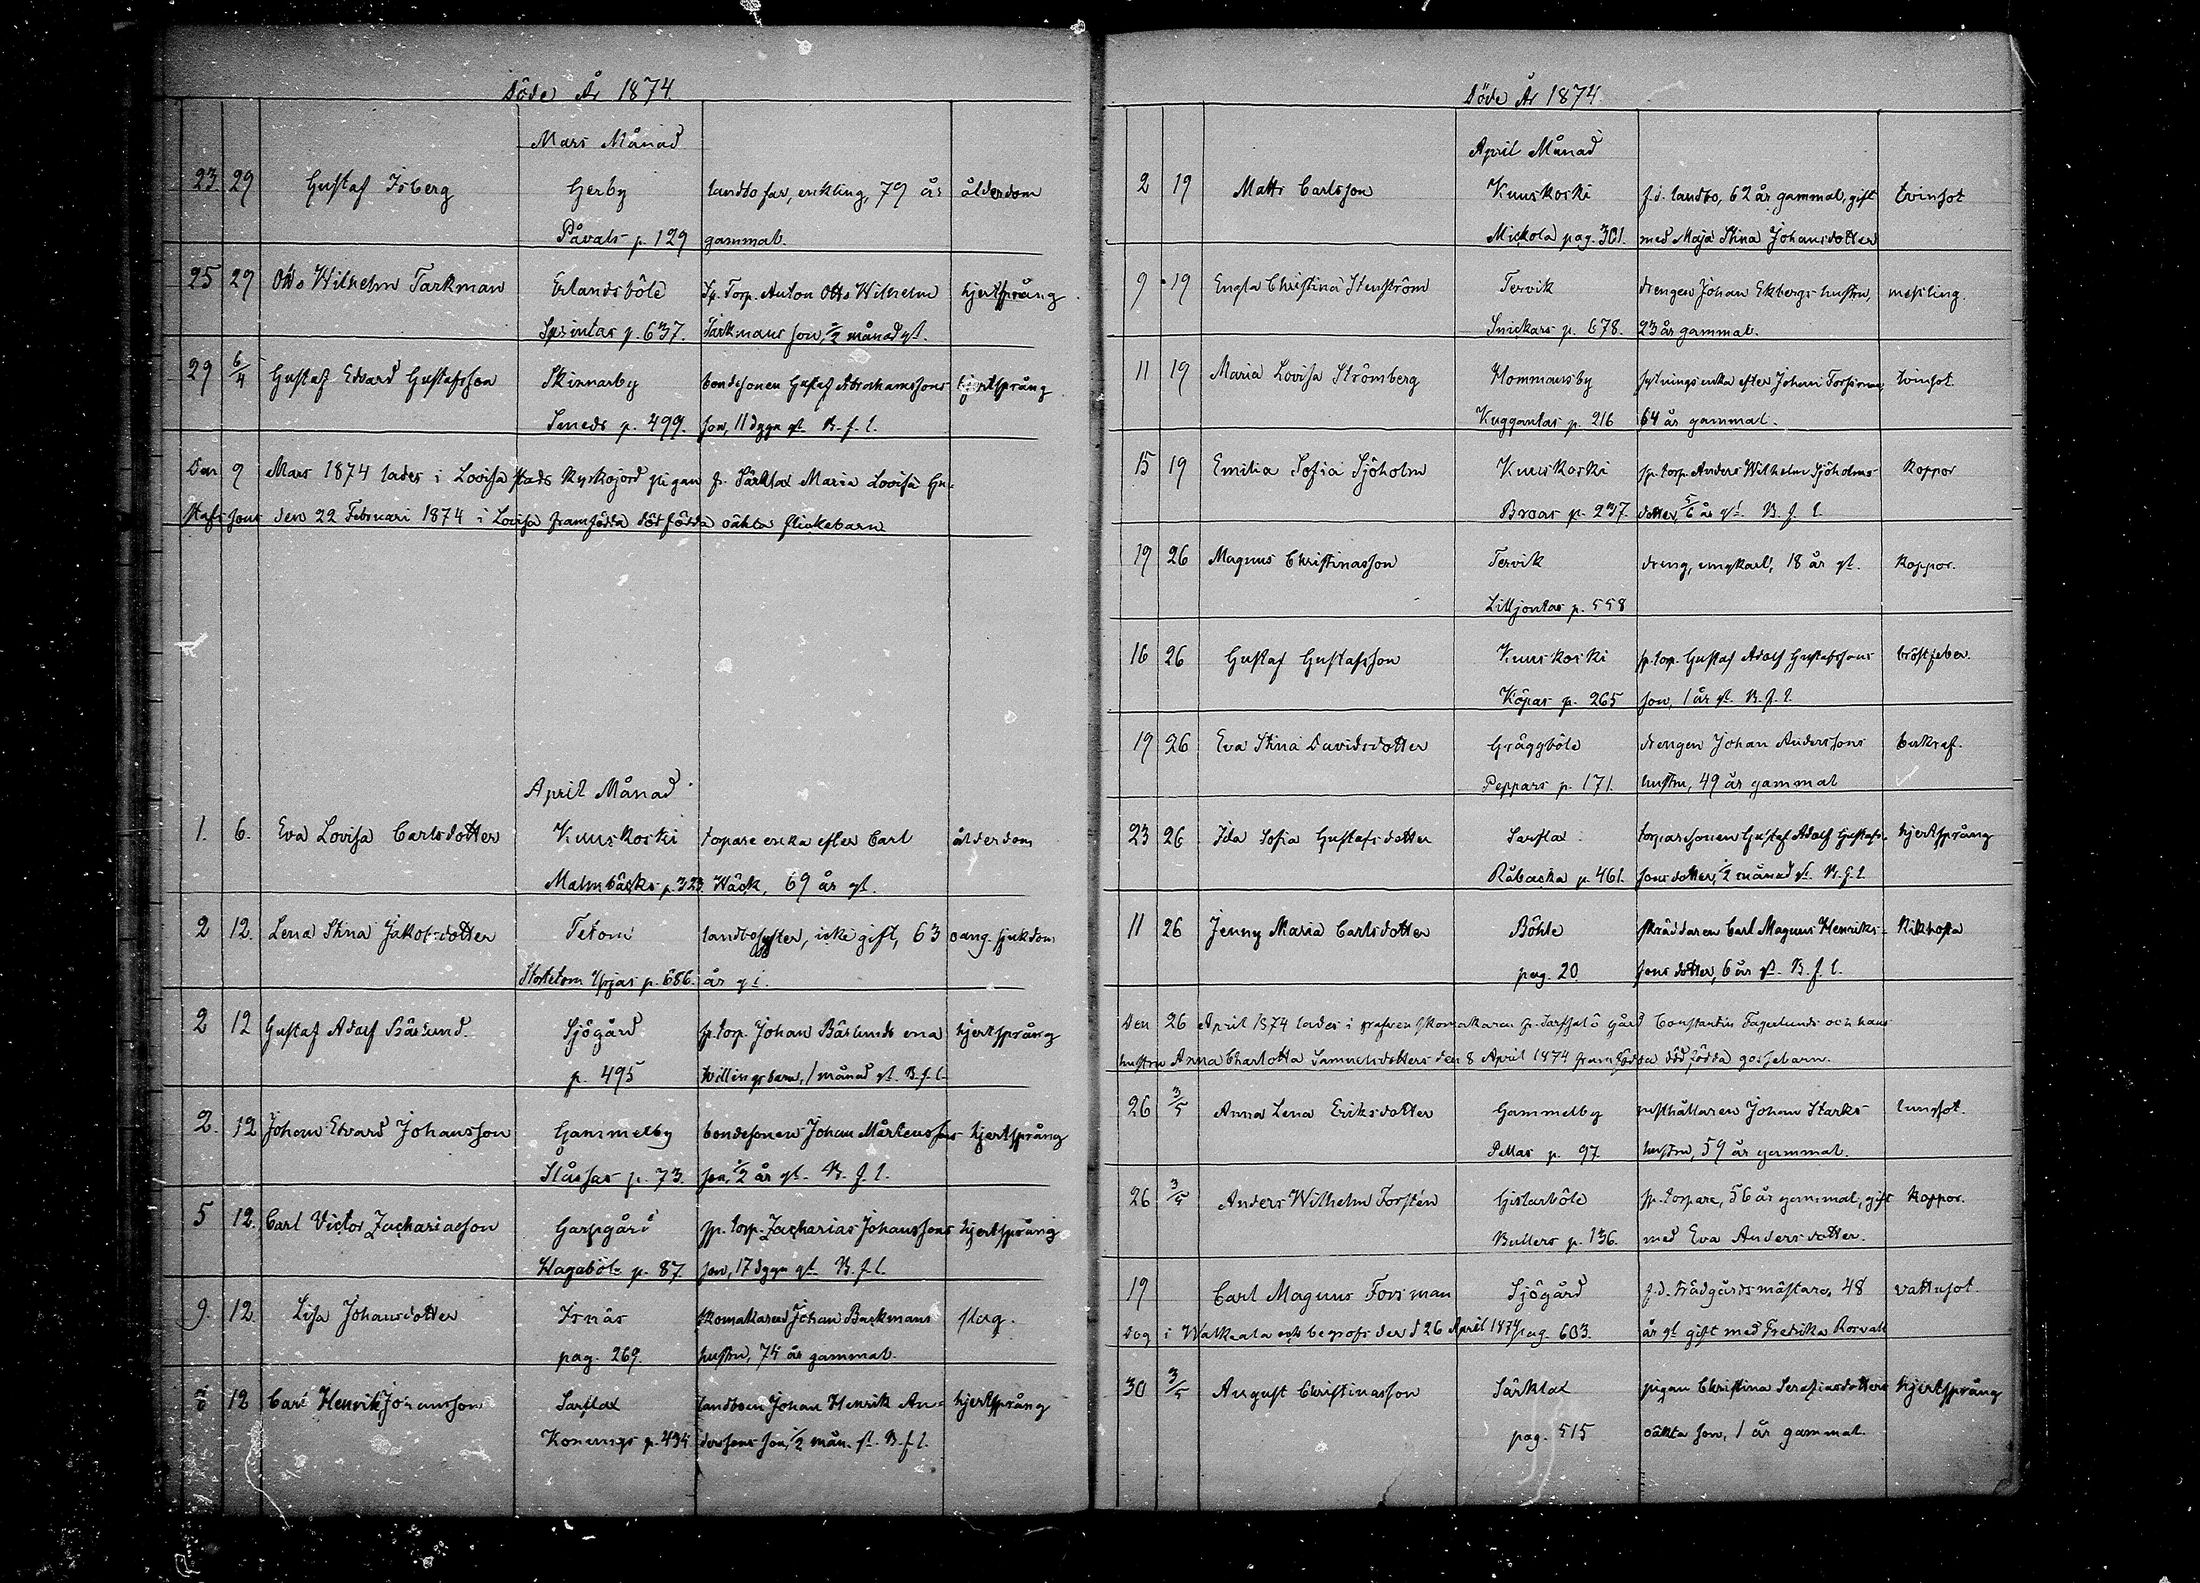 Döde År 1874.
Mars Månad
23 29 Gustaf Isberg Gerby landbo far, enkling, 79 år ålderdom
Påvals p. 129 gammal.
25 29 Otto Wilhelm Tarkman Erlandsböle Sp. Torp. Anton Otto Wilhelm hjertsprång
Sprintas p. 637. Tarkmans son, 1/2 månad gl.
29 6/4 Gustaf Edvard Gustafsson Skinnarby bondesonen Gustaf Abrahamssons hjertsprång
Smeds p. 499. son, 11 dygn gl. B. f. l.
Den 9 Mars 1874 lades i Lovisa stads kyrkojord pigan fr. Särklax Maria Lovisa Gu-
stafssons den 22 Februari 1874 i Lovisa framfödda dödfödda oäkta flickebarn
April Månad
1. 6. Eva Lovisa Carlsdotter Kuuskoski torpare enka efter Carl ålderdom
Malmbäcks p. 323 Häck, 69 år gl.
2 12. Lena Stina Jakobsdotter Tetom landbosyster, icke gift, 63 oang. sjukdom
Stortetom p. 686. år gl.
2 12 Gustaf Adolf Bärlund. Sjögård sp. torp. Johan Bärlunds ena hjertsprång
p. 495 tvillingsbarn, 1 månad gl. B. f. l.
2. 12 Johan Edvard Johansson Gammelby bondesonen Johan Mårtenssons hjertsprång
p. 73. son, 1/2 år gl. B. f. l.
5 12. Carl Victor Zachariasson Garpgård sp. torp. Zacharias Johanssons hjertsprång
Hagaböle p. 87 son, 17 dygn gl. B. f. l.
9. 12. Lisa Johansdotter Isnäs skomakaren Johan Backmans slag.
pag. 269. hustru, 74 år gammal.
12 Carl Henrik Johansson Sarflax landboen Johan Henrik An- hjertsprång
Konungs p. 434 derssons son, 1/2 mån. gl. B. f. l.
Döde År 1874.
April Månad
2 19 Matts Carlsson Kuuskoski f. d. landbo, 62 år gammal, gift tvinsot
Mickola pag. 301. med Maja Stina Johansdotter
9 19 Engla Christina Stenström Tervik drengen Johan Ekbergs hustru, messling.
Snickars p. 678. 23 år gammal.
11 19 Maria Lovisa Strömberg Hommansby sytningsenka efter Johan Forsman tvinsot.
Kuggantas p. 216 64 år gammal.
15 19 Emilia Sofia Sjöholm Kuuskoski sp. torp. Anders Wilhelm Sjöholms koppor
Broas p. 237. dotter, 5/6 år gl. B. f. l.
19 26 Magnus Christinasson Tervik dreng, ungkarl, 18 år gl. koppor.
Lilljontas p. 558
16 26 Gustaf Gustafsson Kuuskoski sp. torp. Gustaf Adolf Gustafssons bröstfeber.
Köpas p. 265 son, 1 år gl. B. f. l.
19 26 Eva Stina Davidsdotter Gräggböle drengen Johan Anderssons benkraf.
Peppars p. 171. hustru, 49 år gammal
23 26 Ida Sofia Gustafsdotter Sarflax torparesonen Gustaf Adolf Gustafs- hjertsprång
Råbacka p. 461. sons dotter, 1/2 månad gl. B. f. l.
11 26 Jenny Maria Carlsdotter Böhle skräddaren Carl Magnus Henriks- Kikhosta
pag. 20. sons dotter, 6 år gl. B. f. l.
Den 26 April 1874 lades i grafven skomakaren fr. Sarfsalö gård Constantin Fagerlunds och hans
hustru Anna Charlotta Samuelsdotters den 8 April 1874 framfödda dödfödda gossebarn.
26 3/5 Anna Lena Eriksdotter Gammelby gästhållaren Johan Starks lungsot.
Pellas p. 97 hustru, 59 år gammal.
26 3/5 Anders Wilhelm Forstén Gislarböle sp. torpare, 56 år gammal, gift koppor.
Bullers p. 136. med Eva Andersdotter.
19 Carl Magnus Forsman Sjögård f. d. trädgårdsmästare, 48 vattusot.
Dog i Walkeala och begrofs der d 26 April 1874 pag. 603. år gl. gift med Fredrika Rorvall
30 3/5 August Christinasson Särklax pigan Christina Serafiasdotters hjertsprång
pag. 515 oäkta son, 1 år gammal.